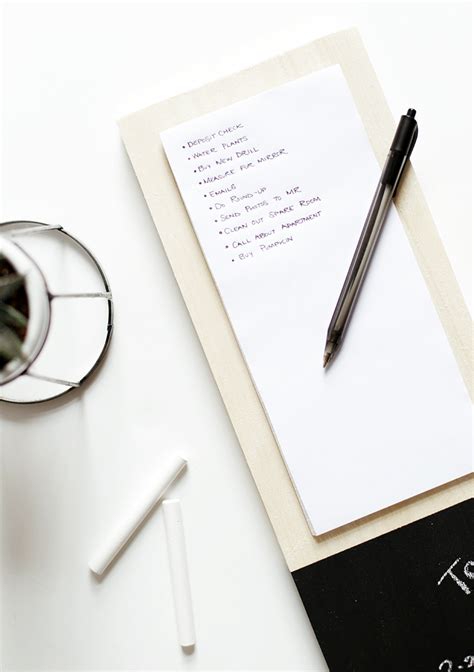 • Deposit Check
• Water Plants
• Buy New Drill
• Measure for Mirror
• Emails
• Do Round-up
• Send Photos to MR
• Clean Out Spare Room
• Call About Apartment
• Buy Pumpkin
To